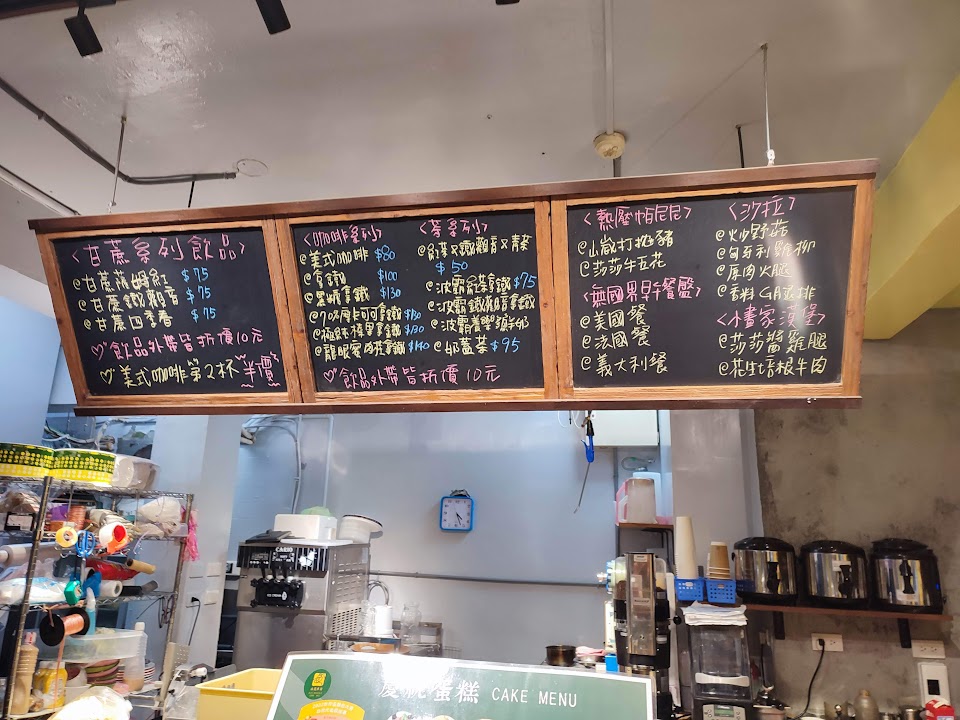 <甘蔗系列飲品>
@甘蔗蔴姆紅 $75
@甘蔗鐵觀音 $75
@甘蔗四季春 $75
♡飲品外帶皆折價10元
♡美式咖啡第2杯半價
<咖啡系列>
@美式咖啡 $80
@拿鐵 $100
@黑糖拿鐵 $130
@70%厚卡可可拿鐵 $130
@極緻抹茶拿鐵 $130
@龍眼蜜 拿鐵 $140
♡飲品外帶皆折價10元
<茶系列>
@紅茶又鐵觀音又青茶
$50
@波霸紅茶拿鐵 $75
@波霸鐵觀音拿鐵
@波霸養樂多
@奶蓋茶 $95
<熱壓帕尼尼>
@山葳打拋豬
@莎莎牛五花
<無國界早午餐盤>
@美國餐
@法國餐
@義大利餐
<沙拉>
@火炒野菇
@匈牙利雞柳
@厚肉火腿
@香料
<木畫家漢堡>
@莎莎醬雞腿
@花生培根牛肉
CARIO
蛋糕 CAKE MENU